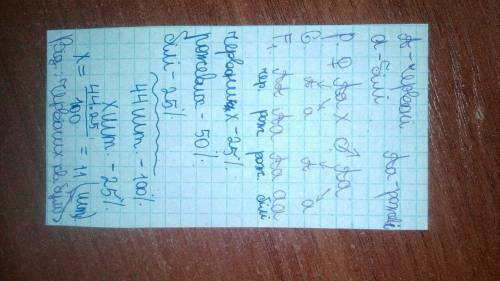 А - червоні Аа - рожеві
а - білі
Р. ♀ Аа х ♂ Аа
G А а А а
F₁ АА Аа Аа аа
чер. рож рож білі
червоних - 25%
рожевих - 50%
білі - 25%
44 шт. - 100%
х шт. - 25%
х = 44·25/100 = 11 (шт)
Від: червоних